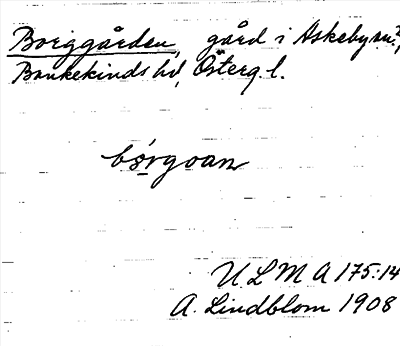 Borggården, gård i Askeby sn,
Bankekinds hd, Österg. l.
börgoan
ULMA 175:14
A. Lindblom 1908